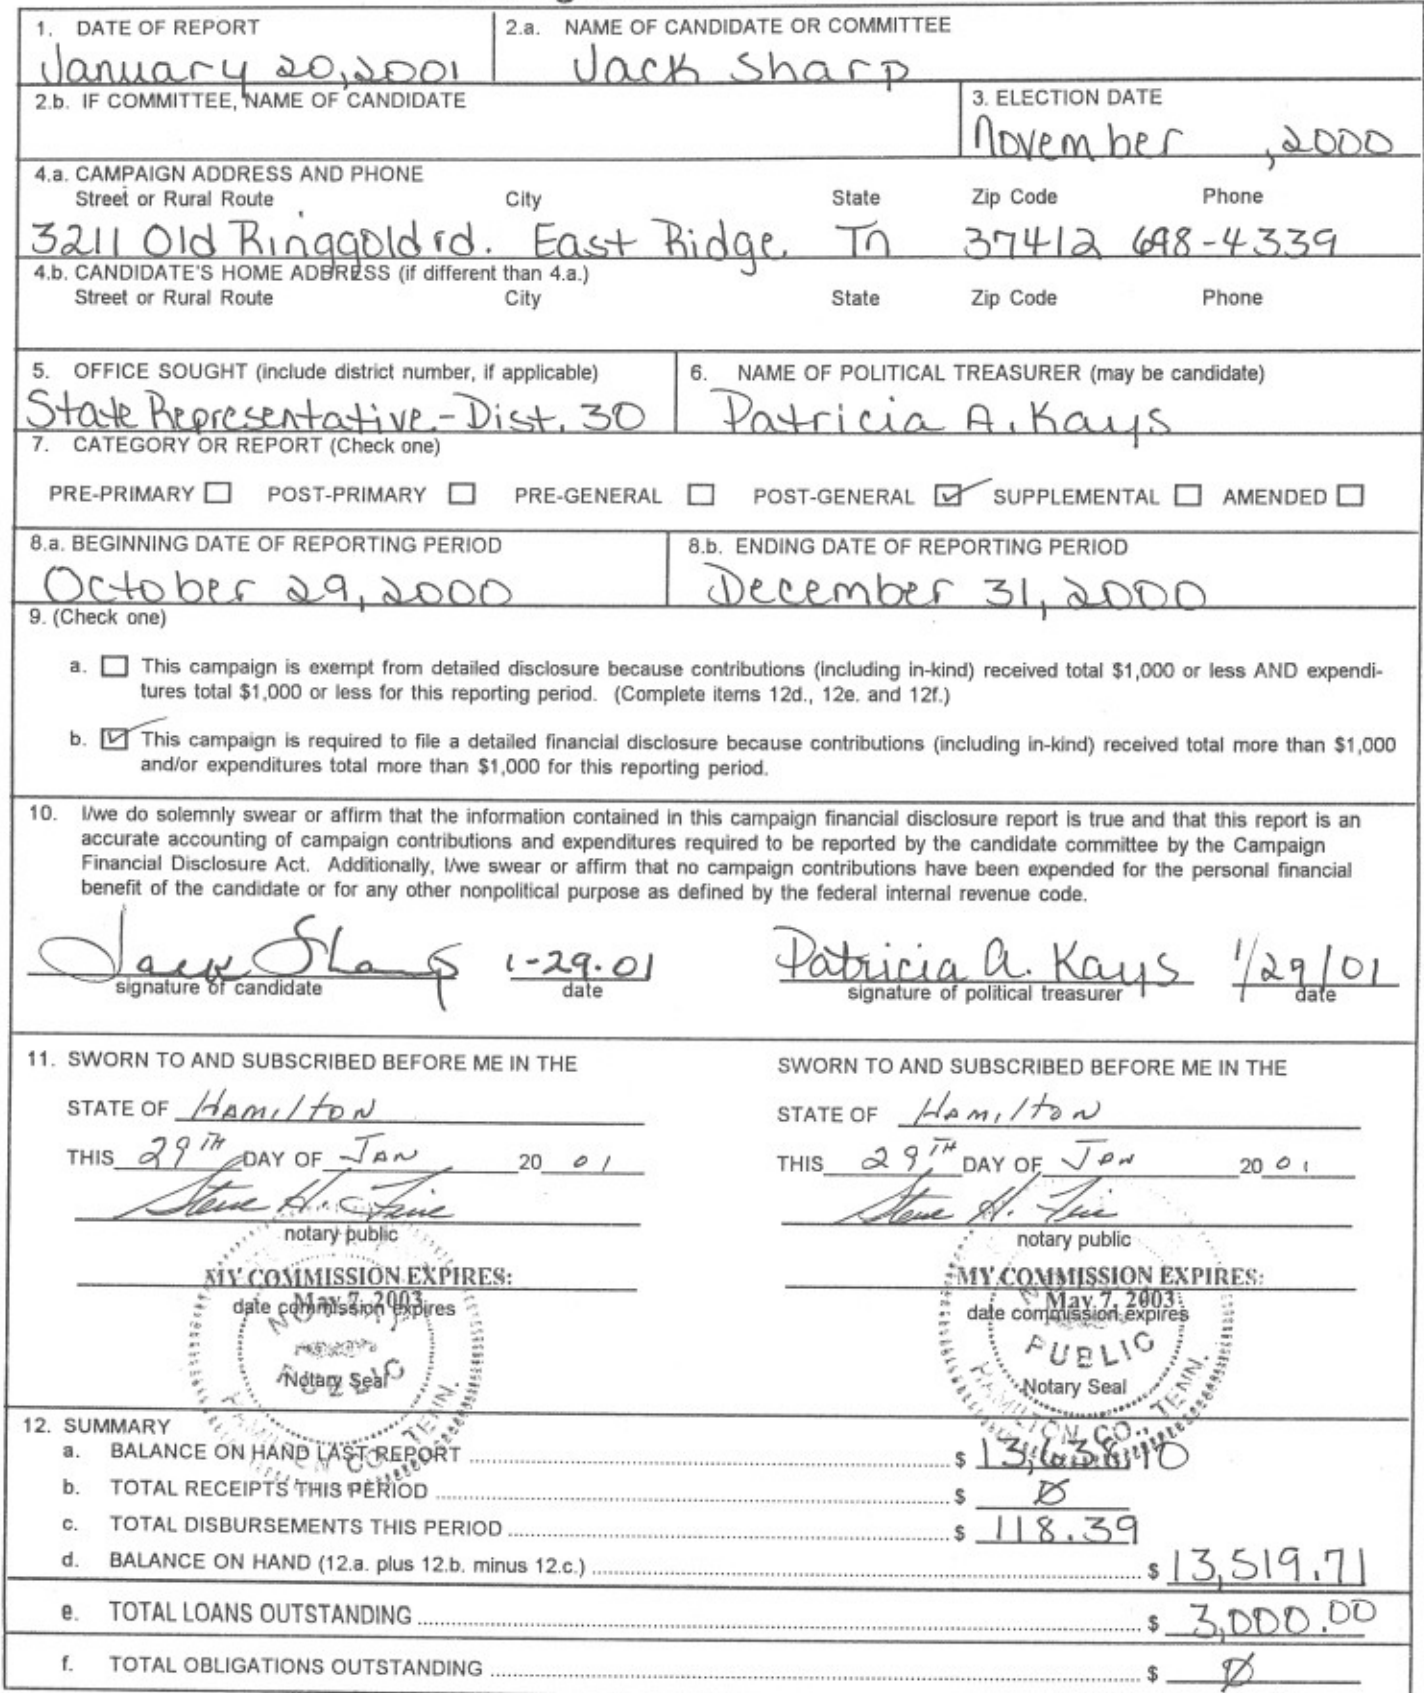 1. DATE OF REPORT
January 20, 2001
2.a. NAME OF CANDIDATE OR COMMITTEE
Jack Sharp
2.b. IF COMMITTEE, NAME OF CANDIDATE
3. ELECTION DATE
November , 2000
4.a. CAMPAIGN ADDRESS AND PHONE
Street or Rural Route City State Zip Code Phone
3211 Old Ringgold rd. East Ridge, Tn 37412 698-4339
4.b. CANDIDATE'S HOME ADDRESS (if different than 4.a.)
Street or Rural Route City State Zip Code Phone
5. OFFICE SOUGHT (include district number, if applicable)
State Representative - Dist. 30
6. NAME OF POLITICAL TREASURER (may be candidate)
Patricia A. Kays
7. CATEGORY OR REPORT (Check one)
PRE-PRIMARY ☐ POST-PRIMARY ☐ PRE-GENERAL ☐ POST-GENERAL ☑ SUPPLEMENTAL ☐ AMENDED ☐
8.a. BEGINNING DATE OF REPORTING PERIOD
October 29, 2000
8.b. ENDING DATE OF REPORTING PERIOD
December 31, 2000
9. (Check one)
a. ☐ This campaign is exempt from detailed disclosure because contributions (including in-kind) received total $1,000 or less AND expendi-
tures total $1,000 or less for this reporting period. (Complete items 12d., 12e. and 12f.)
b. ☑ This campaign is required to file a detailed financial disclosure because contributions (including in-kind) received total more than $1,000
and/or expenditures total more than $1,000 for this reporting period.
10. I/we do solemnly swear or affirm that the information contained in this campaign financial disclosure report is true and that this report is an
accurate accounting of campaign contributions and expenditures required to be reported by the candidate committee by the Campaign
Financial Disclosure Act. Additionally, I/we swear or affirm that no campaign contributions have been expended for the personal financial
benefit of the candidate or for any other nonpolitical purpose as defined by the federal internal revenue code.
Jack Sharp 1-29-01 Patricia A. Kays 1/29/01
signature of candidate date signature of political treasurer date
11. SWORN TO AND SUBSCRIBED BEFORE ME IN THE
STATE OF Hamilton
THIS 29TH DAY OF JAN 20 01
Steve H.
notary public
MY COMMISSION EXPIRES:
May 7, 2003
date commission expires
Notary Seal
SWORN TO AND SUBSCRIBED BEFORE ME IN THE
STATE OF Hamilton
THIS 29TH DAY OF Jan 20 01
Steve H.
notary public
MY COMMISSION EXPIRES:
May 7, 2003
date commission expires
PUBLIC
Notary Seal
HAMILTON CO., TENN.
12. SUMMARY
a. BALANCE ON HAND LAST REPORT $ 13,638.10
b. TOTAL RECEIPTS THIS PERIOD $ Ø
c. TOTAL DISBURSEMENTS THIS PERIOD $ 118.39
d. BALANCE ON HAND (12.a. plus 12.b. minus 12.c.) $ 13,519.71
e. TOTAL LOANS OUTSTANDING $ 3,000.00
f. TOTAL OBLIGATIONS OUTSTANDING $ Ø